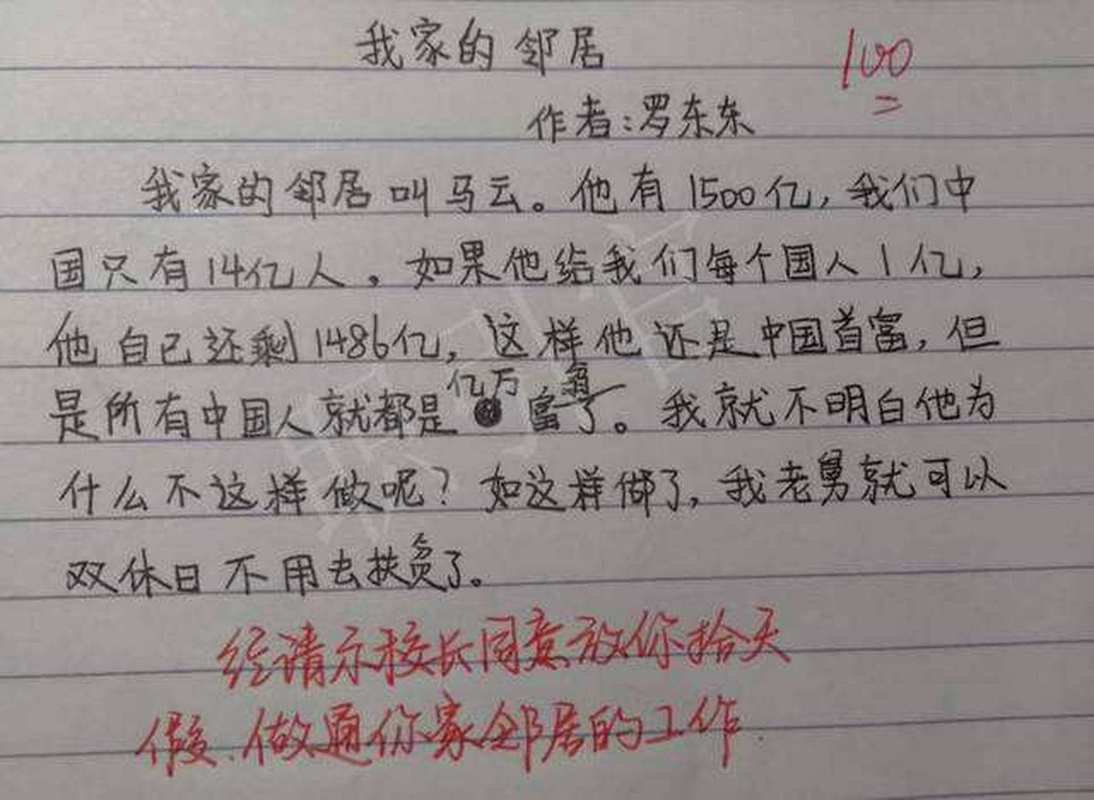 我家的邻居
100
作者:罗东东
我家的邻居叫马云。他有1500亿,我们中
国只有14亿人。如果他给我们每个国人1亿,
他自己还剩1486亿,这样他还是中国首富,但
是所有中国人就都是亿万富翁了。我就不明白他为
什么不这样做呢?如这样做了,我老舅就可以
双休日不用去扶贫了。
经请示校长同意放你拾天
假.做通你家邻居的工作.